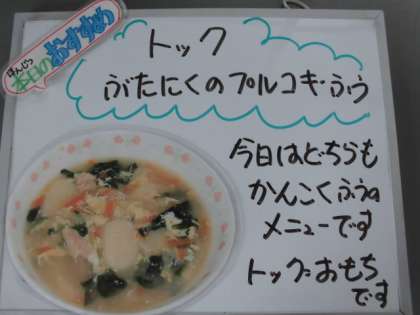 ほんじつ
本日のおすすめ
トック
ぶたにくのプルコギふう
今日はどちらも
かんこくふうの
メニューです
トック:おもち
です